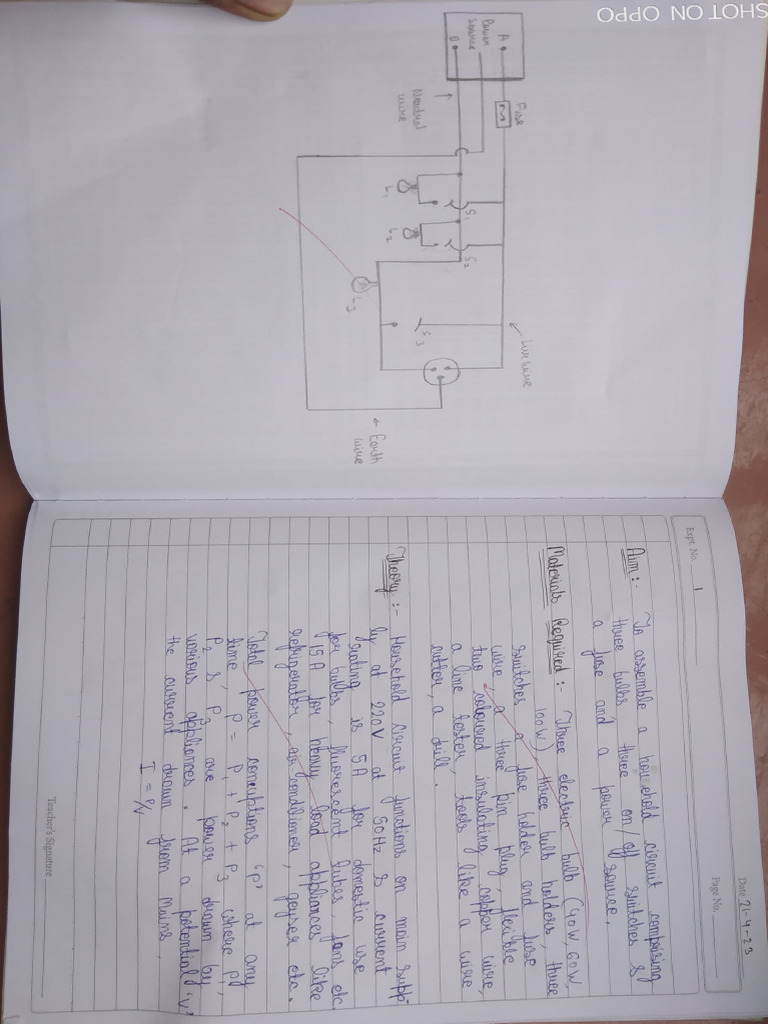 SHOT ON OPPO
A
Power
Source
B
Fuse
Neutral
wire
L1
S1
L2
S2
L3
S3
Live wire
Earth
wire
Expt. No. 1
Date 21-4-23
Page No.
Aim :- To assemble a household circuit comprising
three bulbs, three on/off switches &
a fuse and a power source.
Materials Required :- Three electric bulb (40W, 60W,
100W), three bulb holders, three
switches, a fuse holder and fuse
wire, a three pin plug, flexible
two coloured insulating copper wire,
a line tester, tools like a wire
cutter, a drill.
Theory :- Household circuit functions on main supp-
ly at 220V at 50Hz & current
rating is 5A for domestic use
for bulbs, fluorescent tubes, fans, etc
15 A for heavy load appliances like
refrigerator, air conditioner, geyser etc.
Total power consuptions "P" at any
time, P = P1 + P2 + P3 where P1,
P2 & P3 are power drawn by
various appliances. At a potential 'V'
the current drawn from Mains,
I = P/V
Teacher's Signature